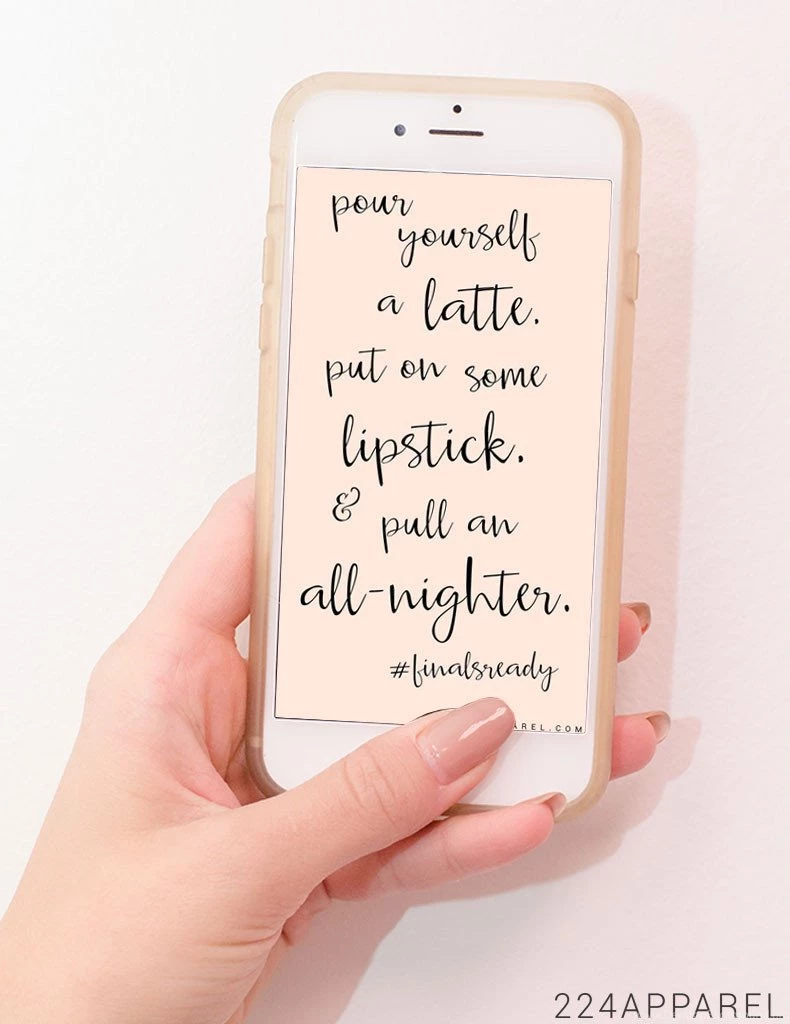 pour
yourself
a latte.
put on some
lipstick.
& pull an
all-nighter.
#finalsready
AREL.COM
224APPAREL